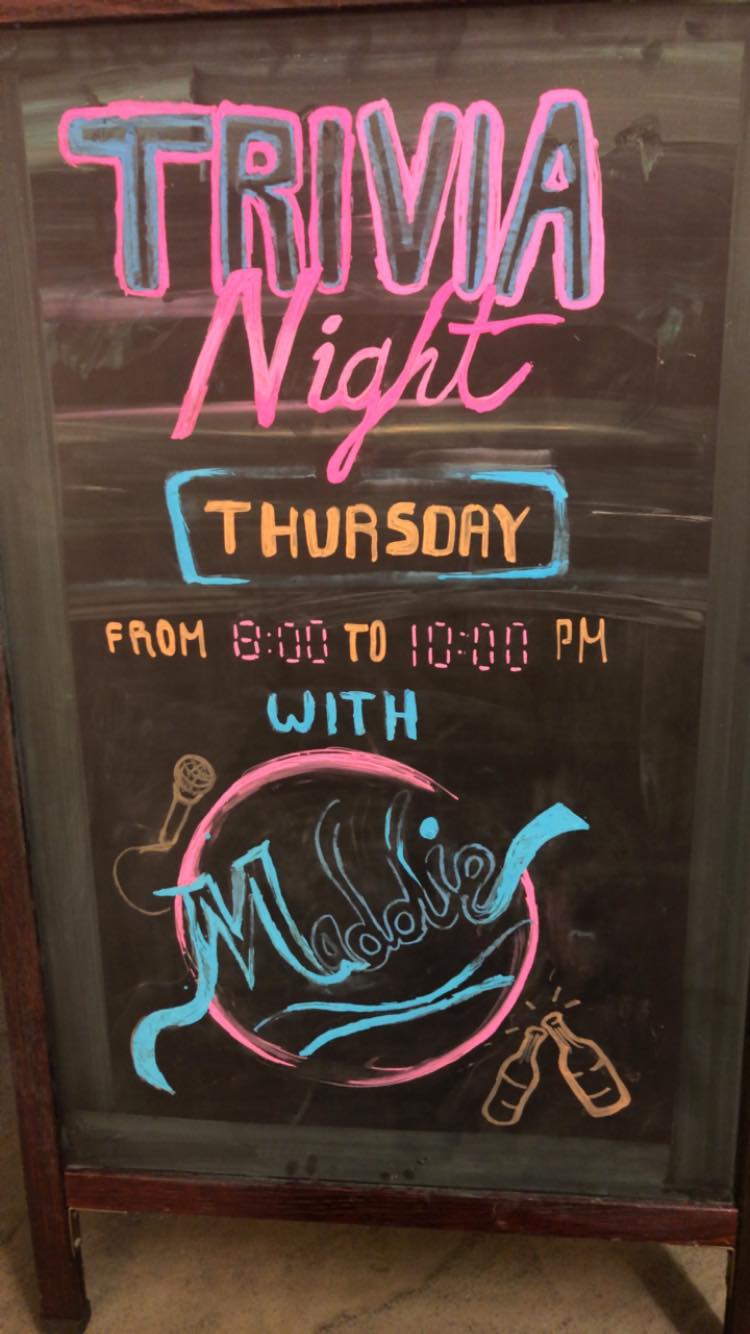 TRIVIA
Night
THURSDAY
FROM 8:00 TO 10:00 PM
WITH
Maddie